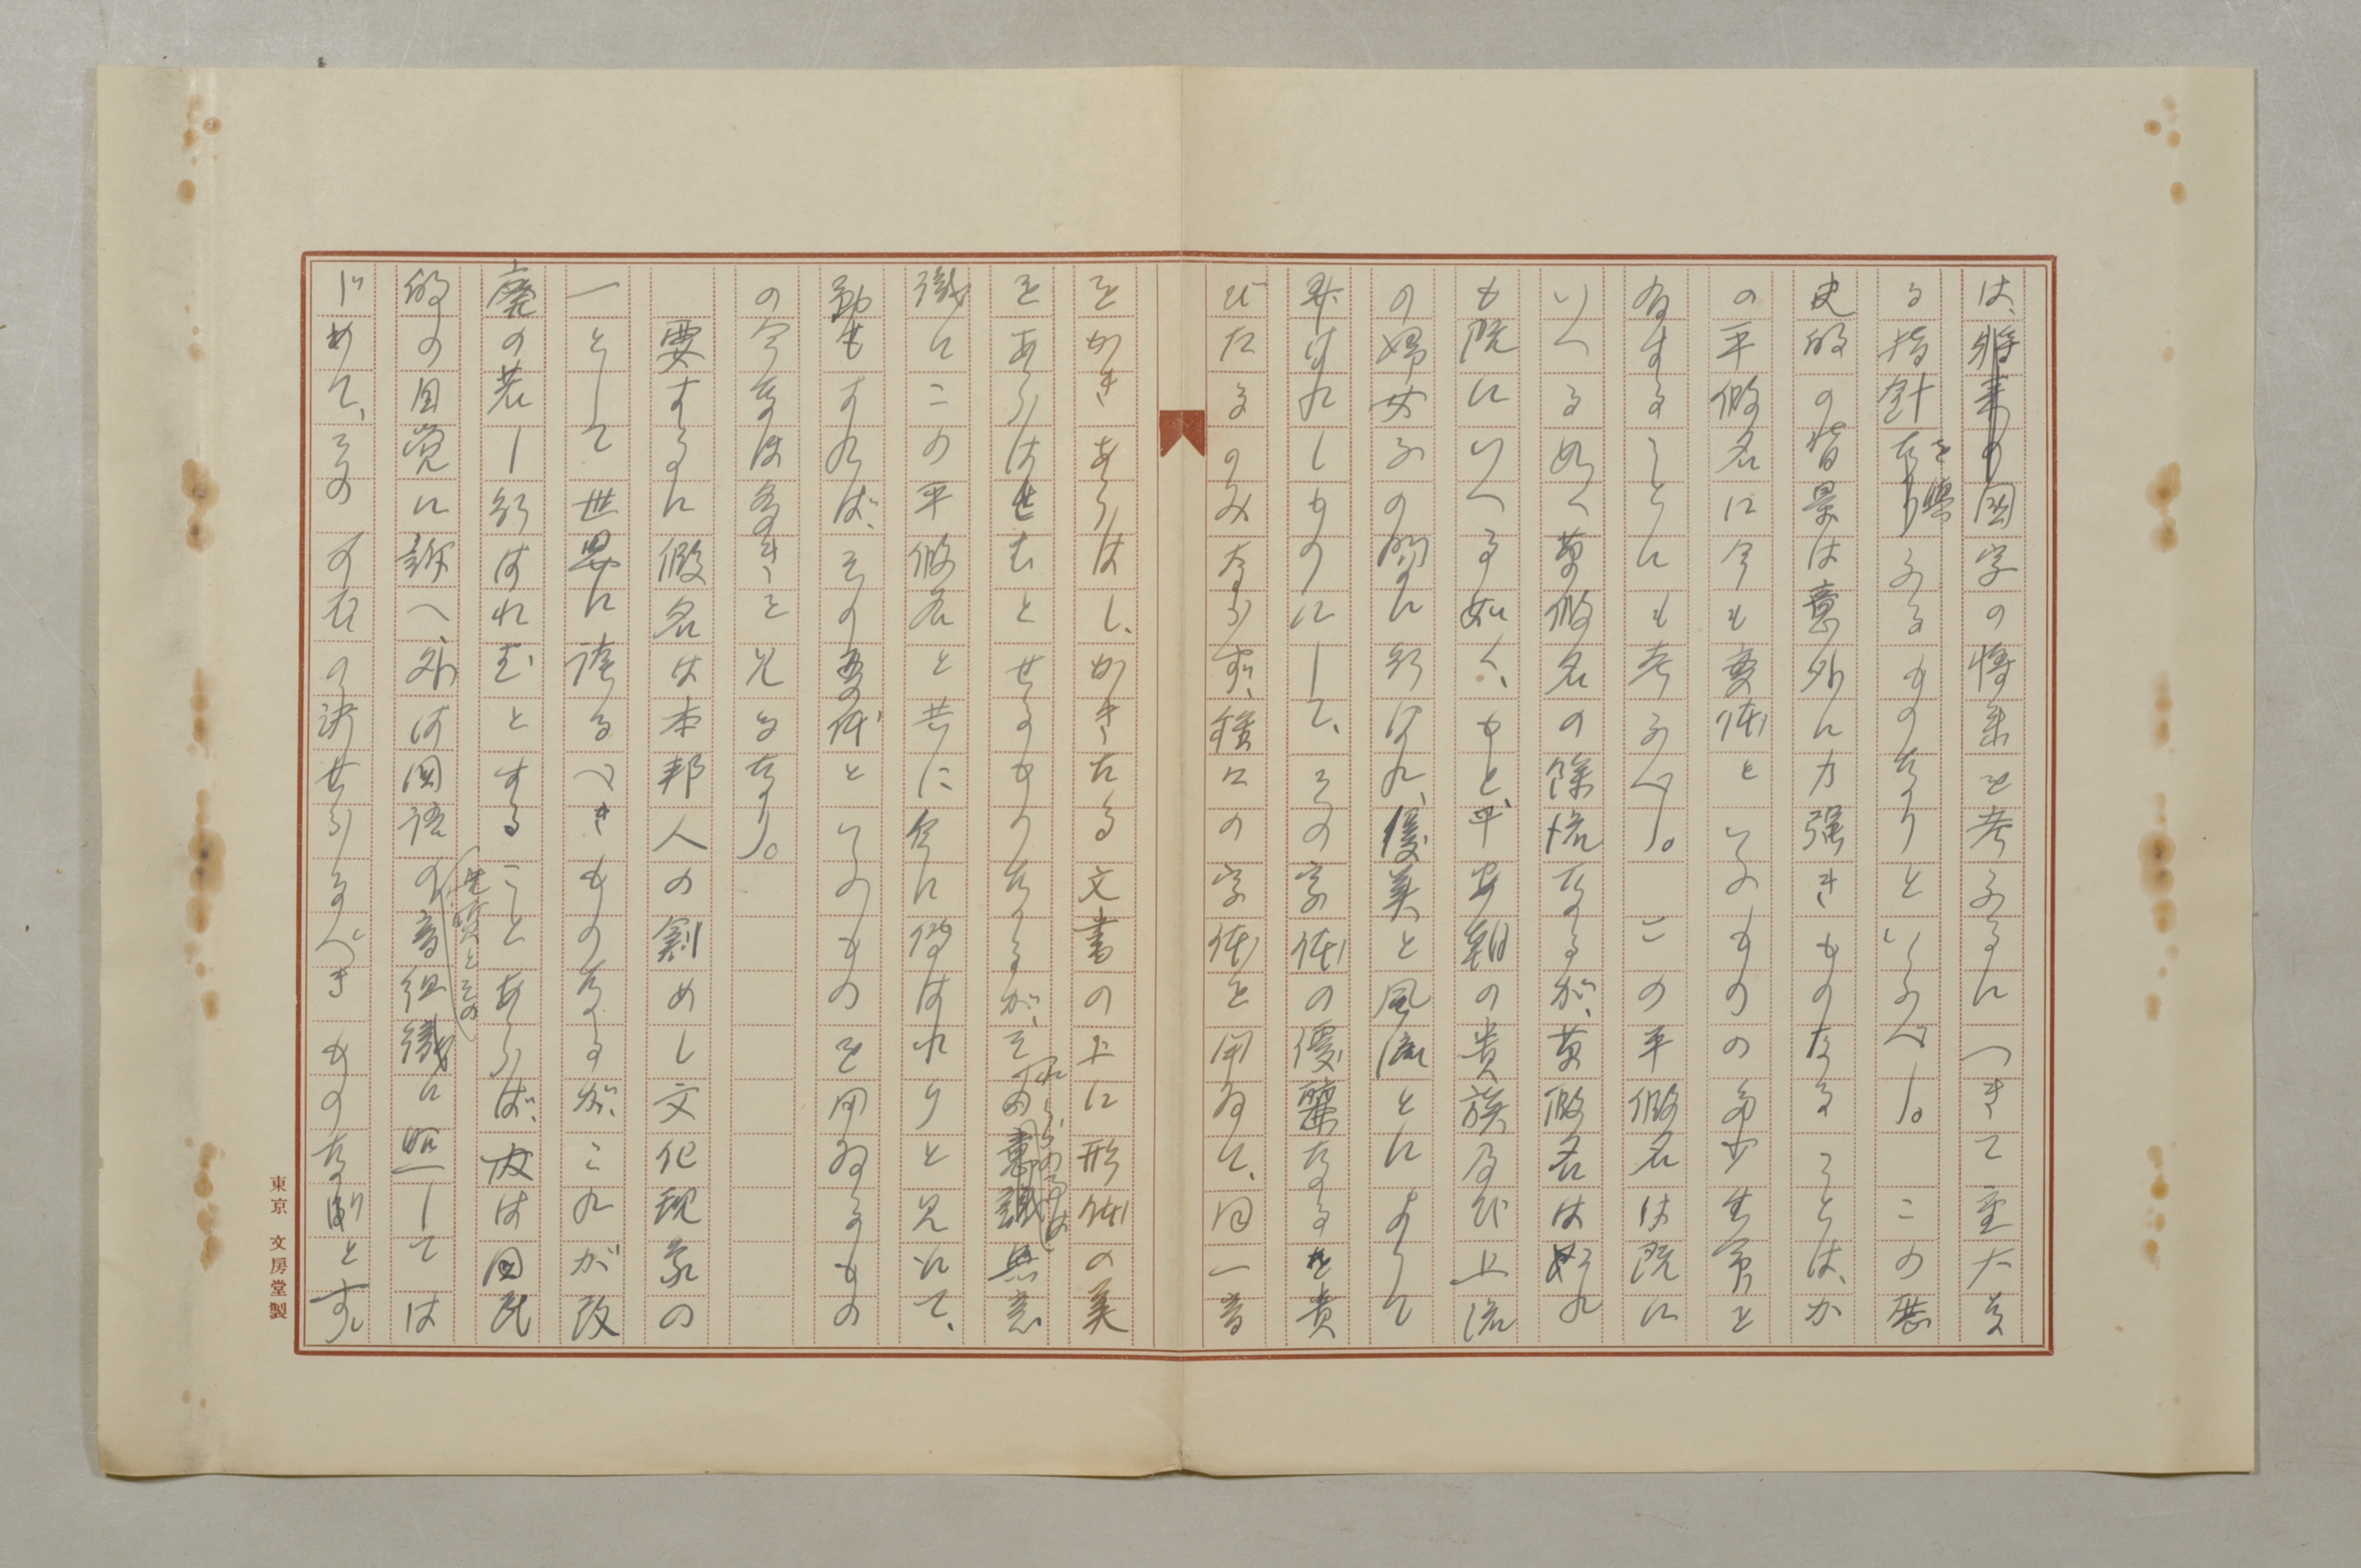 は、國字の将来を考ふるにつきて重大な
る指針を與ふるものなりといふべし。この歴
史的の背景は意外に力强きものなることは、か
の平假名に今も変体といふものの多少生命を
有することにも考ふべし。この平假名は既に
いへる如く草假名の餘流なるが、草假名は
も既にいへる如く、もと、平安朝の貴族及び上流
の婦女子の間に行はれ、優美と風流とによりて
弄ばれしものにして、その字体の優麗なるを貴
びたるのみならず、種々の字体を用ゐて、同一音
をかきあらはし、かきたる文書の上に形体の美
をあらはせむとせるものなるが、それらの事は無意
識にこの平假名と共に今に傳はれりと見えて、
動もすれば、その変体といふものを用ゐるもの
の今なほ多きを見るなり。
要するに假名は本邦人の創めし文化現象の
一として世界に誇るべきものなるが、これが改
廃の若し行はれむとすることあらば、内は国民
的の自覚に訴へ、外は国語の性質とその音組織に照しては
じめて、その可否の決せらるべきものなりとす。
東京 文房堂製